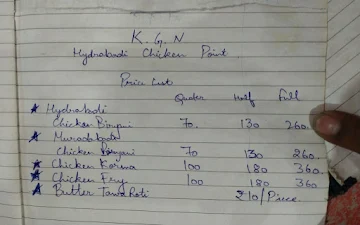 K. G. N
Hydrabadi Chicken Point
Price List
Quater Half Full
★ Hydrabadi
Chicken Biryani 70. 130 260.
★ Muradabadi
Chicken Biryani 70 130 260.
★ Chicken Korma 100 180 360.
★ Chicken Fry 100 180 360
★ Butter Tawa Roti ₹10/Piece.